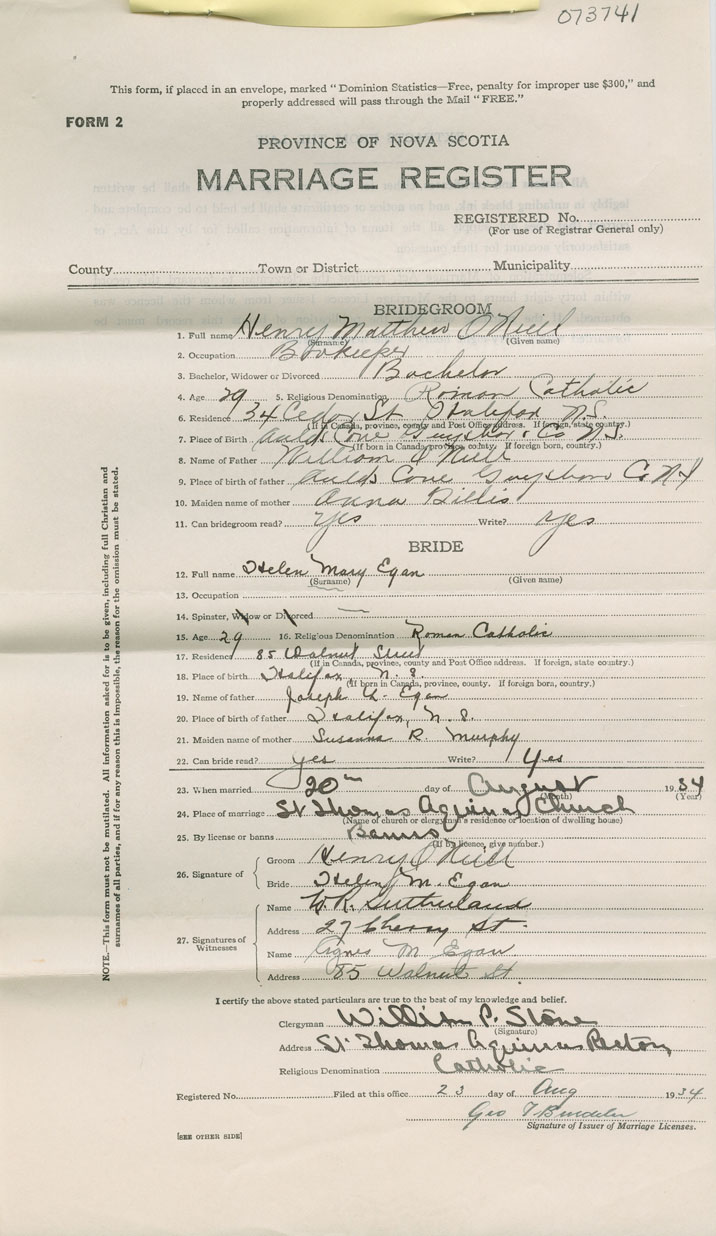 073741
This form, if placed in an envelope, marked "Dominion Statistics—Free, penalty for improper use $300," and
properly addressed will pass through the Mail "FREE."
FORM 2
PROVINCE OF NOVA SCOTIA
MARRIAGE REGISTER
REGISTERED No.
(For use of Registrar General only)
County Town or District Municipality
BRIDEGROOM
1. Full name Henry Matthew O'Neill
(Surname) (Given name)
2. Occupation Bookeeper
3. Bachelor, Widower or Divorced Bachelor
4. Age 29 5. Religious Denomination Roman Catholic
6. Residence 34 Cedar St Halifax N.S.
(If in Canada, province, county and Post Office address. If foreign, state country.)
7. Place of Birth Aulds Cove Guysboro Co N.S.
(If born in Canada, province, county. If foreign born, country.)
8. Name of Father William O'Neill
9. Place of birth of father Aulds Cove Guysboro Co N.S
10. Maiden name of mother Anna
11. Can bridegroom read? Yes Write? Yes
BRIDE
12. Full name Helen Mary Egan
(Surname) (Given name)
13. Occupation
14. Spinster, Widow or Divorced
15. Age 29 16. Religious Denomination Roman Catholic
17. Residence 85 Walnut Street
(If in Canada, province, county and Post Office address. If foreign, state country.)
18. Place of birth Halifax, N.S.
(If born in Canada, province, county. If foreign born, country.)
19. Name of father Joseph Egan
20. Place of birth of father Halifax, N.S.
21. Maiden name of mother Susanna R. Murphy
22. Can bride read? yes Write? Yes
23. When married 20th day of August 1934
(Month) (Year)
24. Place of marriage St Thomas Aquinas Church
(Name of church or clergyman's residence or location of dwelling house)
25. By license or banns Banns
(If by licence, give number.)
26. Signature of
Groom Henry O'Neill
Bride Helen M. Egan
27. Signatures of Witnesses
Name W.R. Sutherland
Address 27 Cherry St.
Name Agnes M Egan
Address 85 Walnut St.
I certify the above stated particulars are true to the best of my knowledge and belief.
Clergyman William P. Stone
(Signature)
Address St Thomas Aquinas
Religious Denomination Catholic
Registered No. Filed at this office 23 day of Aug 1934
Geo
Signature of Issuer of Marriage Licenses.
[SEE OTHER SIDE]
NOTE.—This form must not be mutilated. All information asked for is to be given, including full Christian and
surnames of all parties, and if for any reason this is impossible, the reason for the omission must be stated.